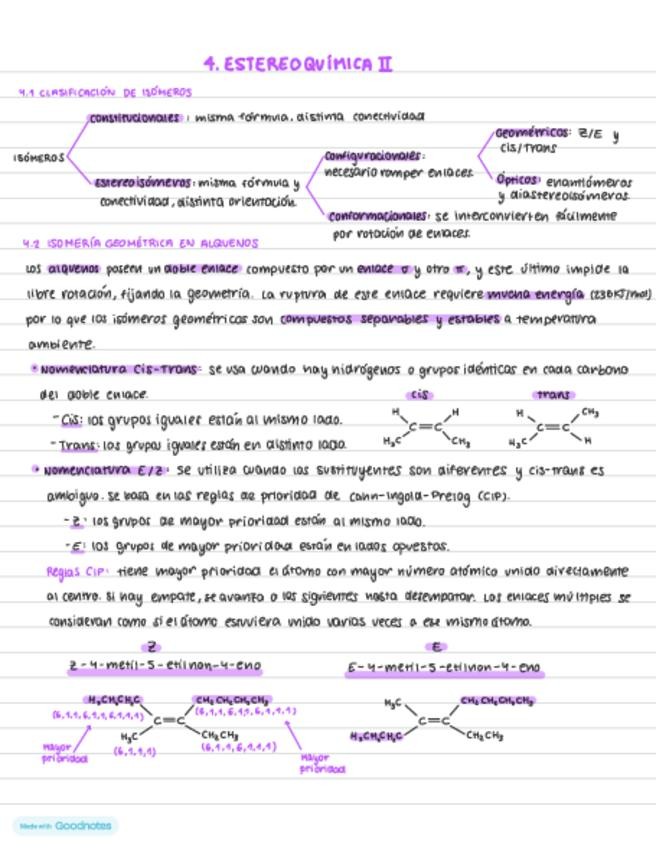 4. ESTEREOQUÍMICA II
4.1 CLASIFICACIÓN DE ISÓMEROS
ISÓMEROS
constitucionales: misma fórmula, distinta conectividad
Estereoisómeros: misma fórmula y
conectividad, distinta orientación.
configuracionales:
necesario romper enlaces
conformacionales: se interconvierten fácilmente
por rotación de enlaces.
Geométricos: Z/E y
cis/trans
Ópticos: enantiómeros
y diastereoisómeros
4.2 ISOMERÍA GEOMÉTRICA EN ALQUENOS
Los alquenos poseen un doble enlace compuesto por un enlace σ y otro π, y este último impide la
libre rotación, fijando la geometría. La ruptura de este enlace requiere mucha energía (230KJ/mol)
por lo que los isómeros geométricos son compuestos separables y estables a temperatura
ambiente.
• Nomenclatura Cis-Trans: se usa cuando hay hidrógenos o grupos idénticos en cada carbono
del doble enlace.
- Cis: los grupos iguales están al mismo lado.
- Trans: los grupos iguales están en distinto lado.
cis
H H
C=C
H₃C CH₃
trans
H CH₃
C=C
H₃C H
• Nomenclatura E/Z: se utiliza cuando los sustituyentes son diferentes y cis-trans es
ambiguo. Se basa en las reglas de prioridad de Cahn-Ingold-Prelog (CIP).
- Z: los grupos de mayor prioridad están al mismo lado.
- E: los grupos de mayor prioridad están en lados opuestos.
Reglas CIP: tiene mayor prioridad el átomo con mayor número atómico unido directamente
al centro. Si hay empate, se avanza a los siguientes hasta desempatar. Los enlaces múltiples se
consideran como si el átomo estuviera unido varias veces a ese mismo átomo.
Z
Z-4-metil-5-etilnon-4-eno
H₃CH₂CH₂C CH₂CH₂CH₂CH₃
(6,1,1,6,1,1,6,1,1,1) (6,1,1,6,1,1,6,1,1,1)
C=C
H₃C CH₂CH₃
(6,1,1,1) (6,1,1,6,1,1,1)
mayor
prioridad
mayor
prioridad
E
E-4-metil-5-etilnon-4-eno
H₃C CH₂CH₂CH₂CH₃
C=C
H₃CH₂CH₂C CH₂CH₃
Made with Goodnotes